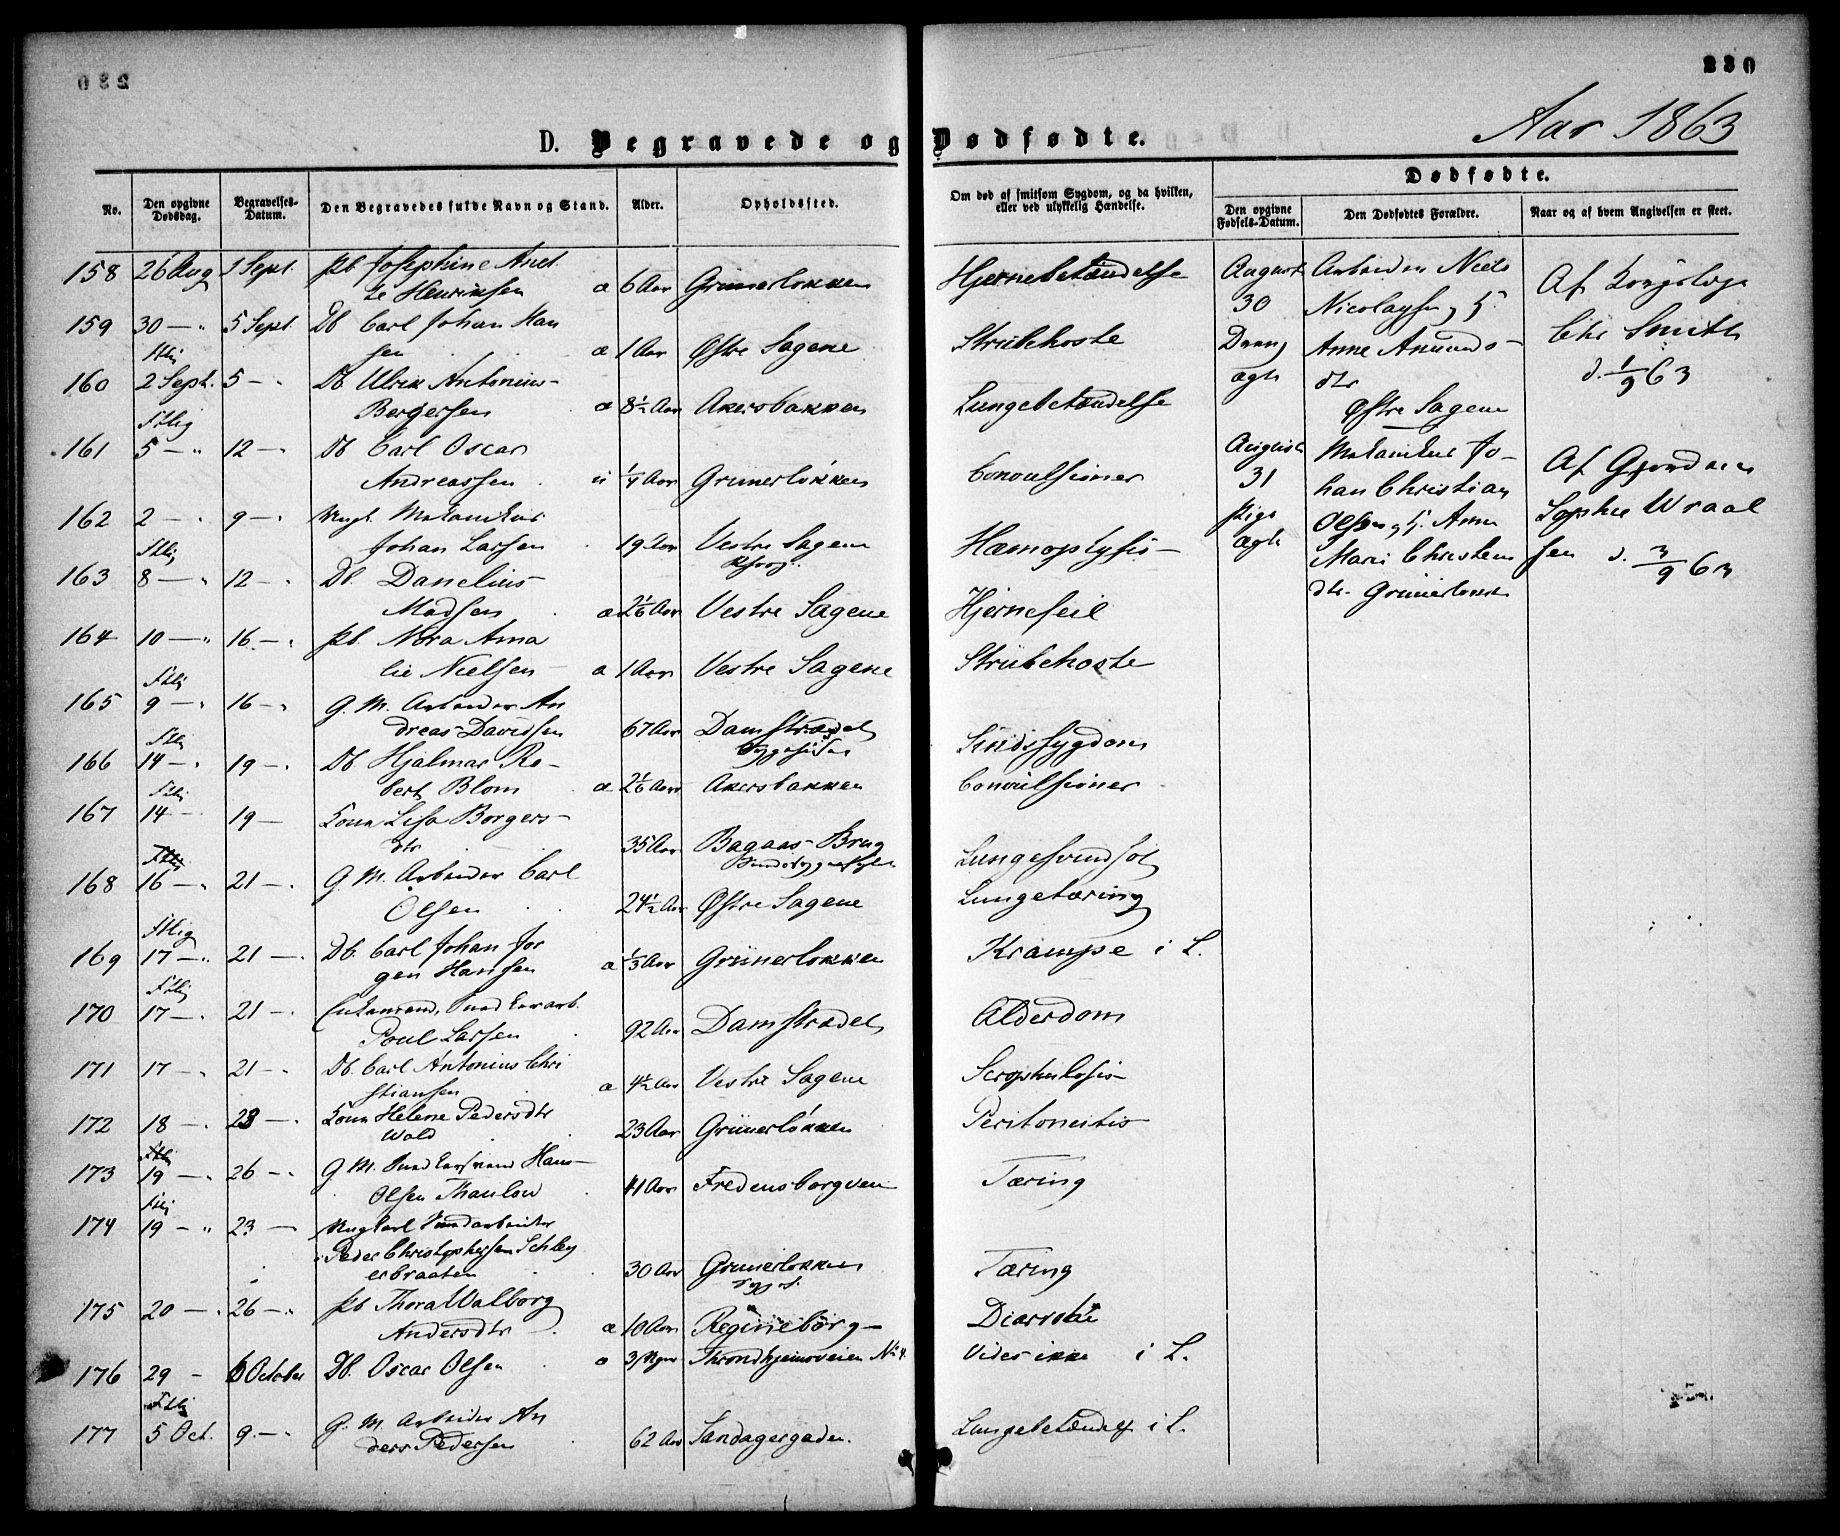 230
Aar 1863
D. Begravede og Dødfødte.
No.
Den opgivne Dødsdag.
Begravelses-Datum.
Den Begravedes fulde Navn og Stand.
Alder.
Opholdssted.
Om død af smitsom Sygdom, og da hvilken, eller ved ulykkelig Hændelse.
Dødfødte.
Den opgivne Fødsels-Datum.
Den Dødfødtes Forældre.
Naar og af hvem Angivelsen er skeet.
158 26 Aug 1 Sept. Pb Josephine Anet
te Henriksen æ 6 Aar Grünerløkken Hjernebetændelse
159 30 — " 5 Sept. Db Carl Johan Han
sen æ 1 Aar Østre Sagene Strubehoste
160 2 Sept. 5 — " Db Ulrik Antonius
Bergersen æ 8½ Aar Akersbakken Lungebetændelse
161 5 — " 12 — Db Carl Oscar
Andreassen u ¼ Aar Grünerløkken Convulsioner
162 2 — 9 — Ungk. Mekanikus
Johan Larsen 19 Aar Vestre Sagene Hæmoptysis
163 8 — " 12 — Db. Danelius
Madsen æ 2 1/6 Aar Vestre Sagene Hjernefeil
164 10 — " 16 — Pb. Nora Ama
lie Nielsen æ 1 Aar Vestre Sagene Strübehoste
165 9 — 16 — G. M. Arbeider An
dreas Davidsen 67 Aar Damstrædet Sindssygdom
Sygehuset
166 14 — 19 — Db Hjalmar Ro-
bert Blom æ 2 1/6 Aar Akersbakken Convülsioner
167 14 — 19 — Kone Lisa Borgers
dtr 35 Aar Bagaas Brug Lungesvindsot
168 16 — " 21 — G. M. Arbeider Carl
Olsen 24½ Aar Østre Sagene Lungetæring
169 17 — " 21 — Db. Carl Johan Jør
gen Hansen æ ⅓ Aar Grünerløkken Krampe i L.
170 17 — 21 — Enkemand,
Poul Larsen 92 Aar Damstrædet Alderdom
171 17 — 21 — Db. Carl Antonius Chri
stiansen æ 4½ Aar Vestre Sagene Scrophulosis
172 18 — 23 — Kone Helene Pedersdtr
Wold 23 Aar Grünerløkken Peritonitis
173 19 — 26 — G. M. Hans
Olsen Thaulow 41 Aar Fredensborgveien Tæring
174 19 — " 23 — Ungkarl
Peder Christophersen Schley
erbraaten 30 Aar Grünerløkken Tæring
175 20 — 26 — Pb Thora Walborg
Andersdtr æ 10 Aar Regineborg Diarrohe
176 29 - 6 October Db. Oscar Olsen æ 3 Mgnr Throndhjemsveien No 4. Vides ikke i L.
177 5 Oct. 9 — G. M. Arbeider An
ders Pedersen 62 Aar Sandagergaden. Lungebetændelse i L.
August 30 Dreng ægte
Arbeider Niels
Nicolaysen og H.
Anne Amunds-
dtr
Østre Sagene
Af
Chr Smith
d. 1/9 63
August 31 Pige ægte
Mekanikus Jo-
han Christian
Olsen og H. Anne
Marie Christens
dtr. Grünerløkken
Af Gjordmor
Sophie Wraal
sen d. 3/9 63